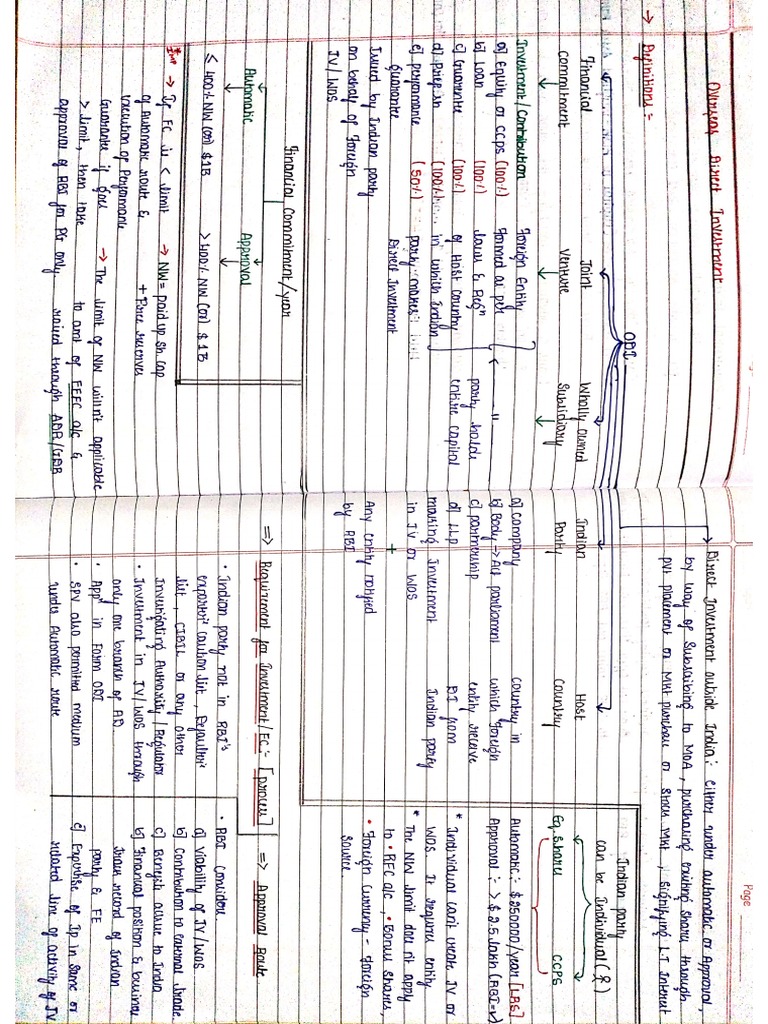 Overseas Direct Investment
→ Definitions :-
ODI
Direct Investment outside India : either under automatic or Approval,
by way of Subscribing to MOA, purchasing existing share through
pvt placement or Mkt purchase or Stock Mkt, signifying L.T Interest
Financial
commitment
Investment / Contribution
a) Equity or CCPS (100%)
b) Loan (100%)
c) Guarantee (100%)
d) (100%)
e) performance (50%)
Guarantee
Issued by Indian party
on behalf of Foreign
JV/WOS
Joint
Venture
Foreign Entity
formed as per
laws & Regn
of Host Country
in which Indian
party makes
Direct Investment
Wholly owned
Subsidiary
"
party holds
entire capital
Indian
Party
a) Company
b) Body → Act parliament
c) partnership
d) LLP
making Investment
in JV or WOS
+
Any entity notified
by RBI
Host
Country
Country in
which foreign
entity receive
DI from
Indian party
Indian party
can be Individual (₹)
Eq. Share
CCPS
Automatic : $ 250000/year [LRS]
Approval : > $ 2.5 lakh (RBI=✓)
* Individual can't create JV or
WOS. It requires entity
* The NW limit does nt apply
to • RFC a/c, • Bonus shares,
• Foreign Currency - Foreign
Source
Financial Commitment/year
Automatic
≤ 400% NW (or) $ 1B
Approval
> 400% NW (or) $ 1B
*Imp → If FC is < limit
of Automatic route &
execution of Performance
Guarantee if goes
> limit, then take
approval of RBI for PG only.
→ NW = paid up Sh. cap
+ Free reserves
→ The limit of NW will n't applicable
to amt of EEFC a/c &
raised through ADR/GDR
⇒ Requirement for Investment/FC :- [process]
• Indian party not in RBI's
exporter caution list, Defaulter
list, CIBIL or any other
Investigating Authority/Regulator
• Investment in JV/WOS through
only one branch of AD.
• Appn in Form ODI
• SPV also permitted medium
under Automatic route
⇒ Approval Route
• RBI consider
a) Viability of JV/WOS
b) Contribution to external trade
c) Benefit accrue to India
d) Financial position & business
track record of Indian
party & FE
e) Expertise of IP in same or
related line of activity of JV
Page